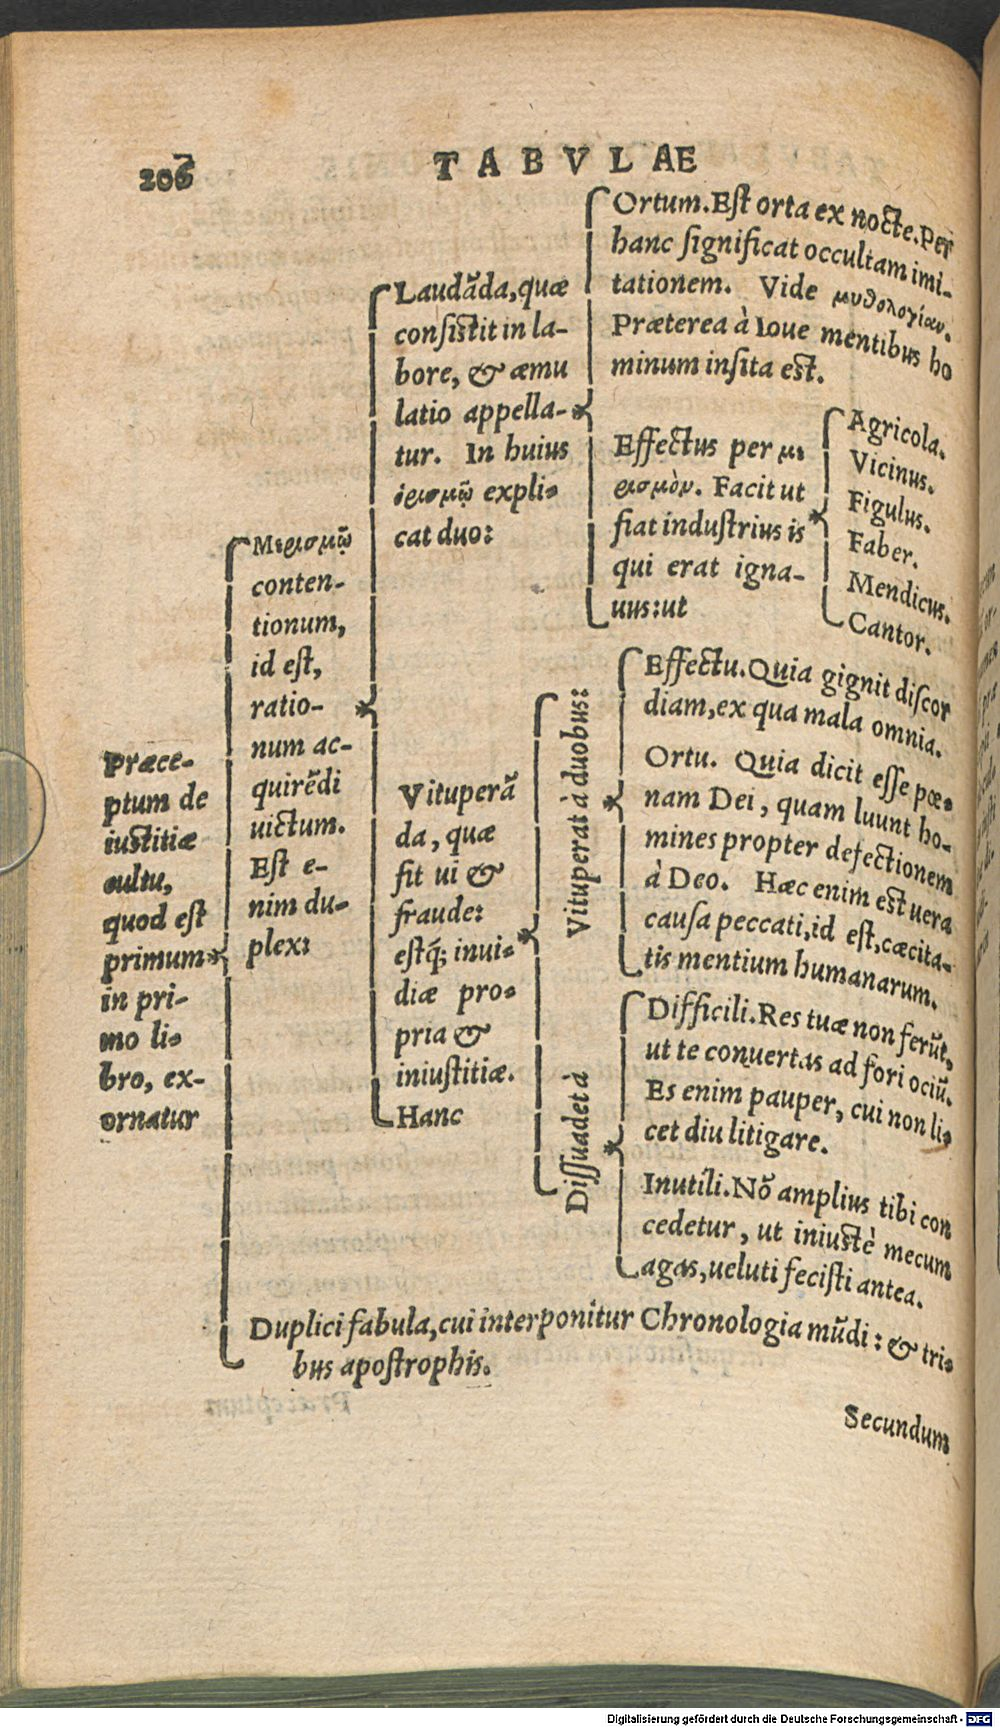 206
TABVLAE
Præce-
ptum de
iustitiæ
cultu,
quod est
primum
in pri-
mo li-
bro, ex-
ornatur
Μερισμῷ
conten-
tionum,
id est,
ratio-
num ac-
quirēdi
uictum.
Est e-
nim du-
plex:
Laudāda, quæ
consistit in la-
bore, & æmu
latio appella-
tur. In huius
ὁρισμῷ expli-
cat duo:
Ortum. Est orta ex nocte. Per
hanc significat occultam imi-
tationem. Vide μυθολογίαν.
Præterea à Ioue mentibus ho
minum insita est.
Effectus per με
ρισμὸν. Facit ut
fiat industrius is
qui erat igna-
uus: ut
Agricola.
Vicinus.
Figulus.
Faber.
Mendicus.
Cantor.
Vituperā
da, quæ
fit ui &
fraude:
estq́; inui-
diæ pro-
pria &
iniustitiæ.
Hanc
Vituperat à duobus:
Effectu. Quia gignit discor
diam, ex qua mala omnia.
Ortu. Quia dicit esse pœ-
nam Dei, quam luunt ho-
mines propter defectionem
à Deo. Hæc enim est uera
causa peccati, id est, cæcita-
tis mentium humanarum.
Dissuadet à
Difficili. Res tuæ non ferūt,
ut te conuertas ad fori ociū.
Es enim pauper, cui non li-
cet diu litigare.
Inutili. Nō amplius tibi con
cedetur, ut iniustè mecum
agas, ueluti fecisti antea.
Duplici fabula, cui interponitur Chronologia mūdi: & tri-
bus apostrophis.
Secundum
Digitalisierung gefördert durch die Deutsche Forschungsgemeinschaft - DFG